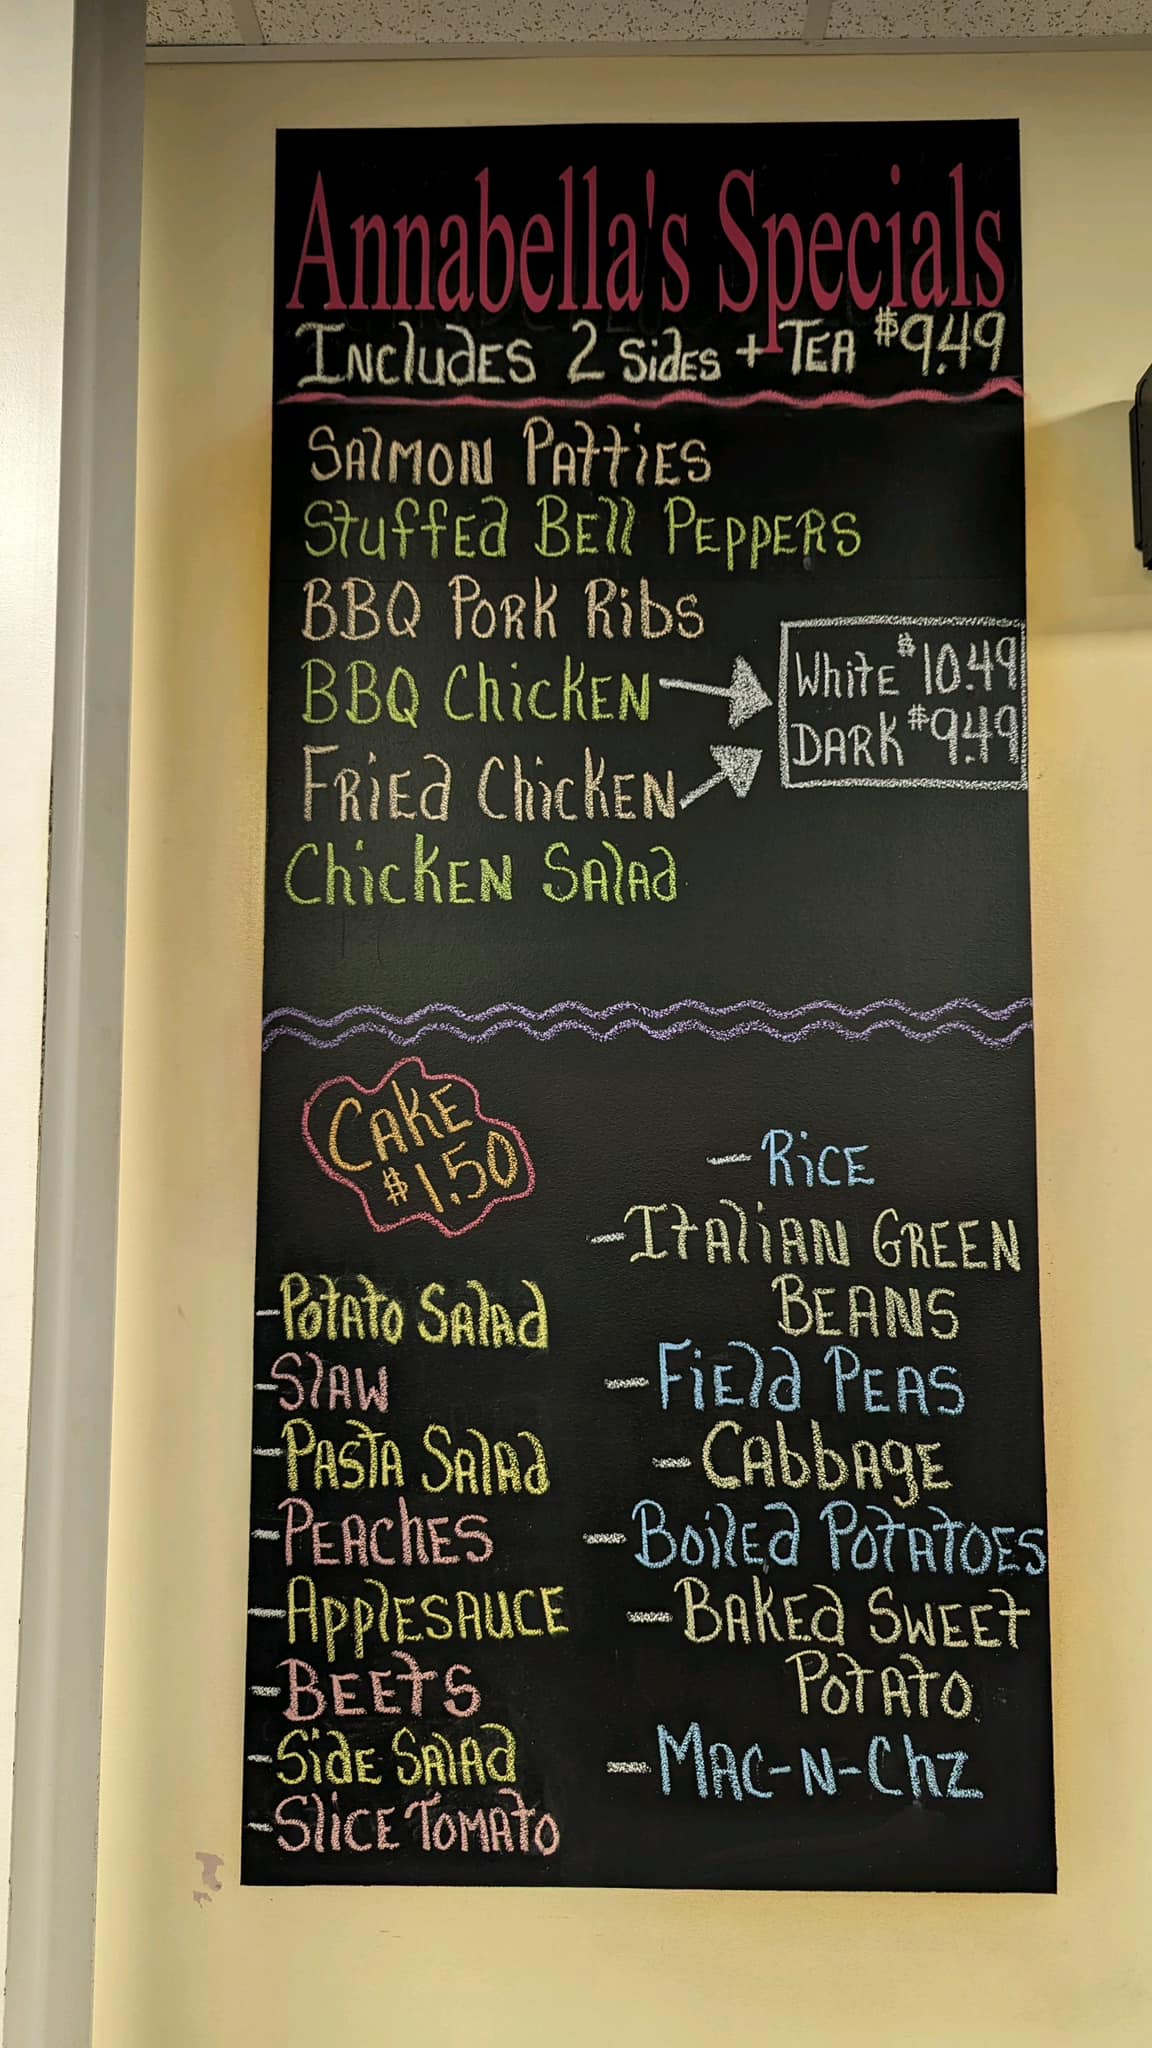 Annabella's Specials
INCLUdES 2 SidES + TEA $9.49
SAlMON PAttiES
StuffEd BEll PEPPERS
BBQ PORK Ribs
BBQ ChicKEN
WhitE $10.49
DARK $9.49
FRiEd ChicKEN
ChicKEN SAlAd
CAKE
$1.50
- RiCE
- ItAliAN GREEN
BEANS
- FiEld PEAS
- CAbbAgE
- BoilEd POtAtOES
- BAKEd SWEEt
POtAtO
- MAC-N-Chz
- POtAtO SAlAd
- SlAW
- PAStA SAlAd
- PEAChES
- APPlESAUCE
- BEEtS
- SidE SAlAd
- SliCE TOMAtO